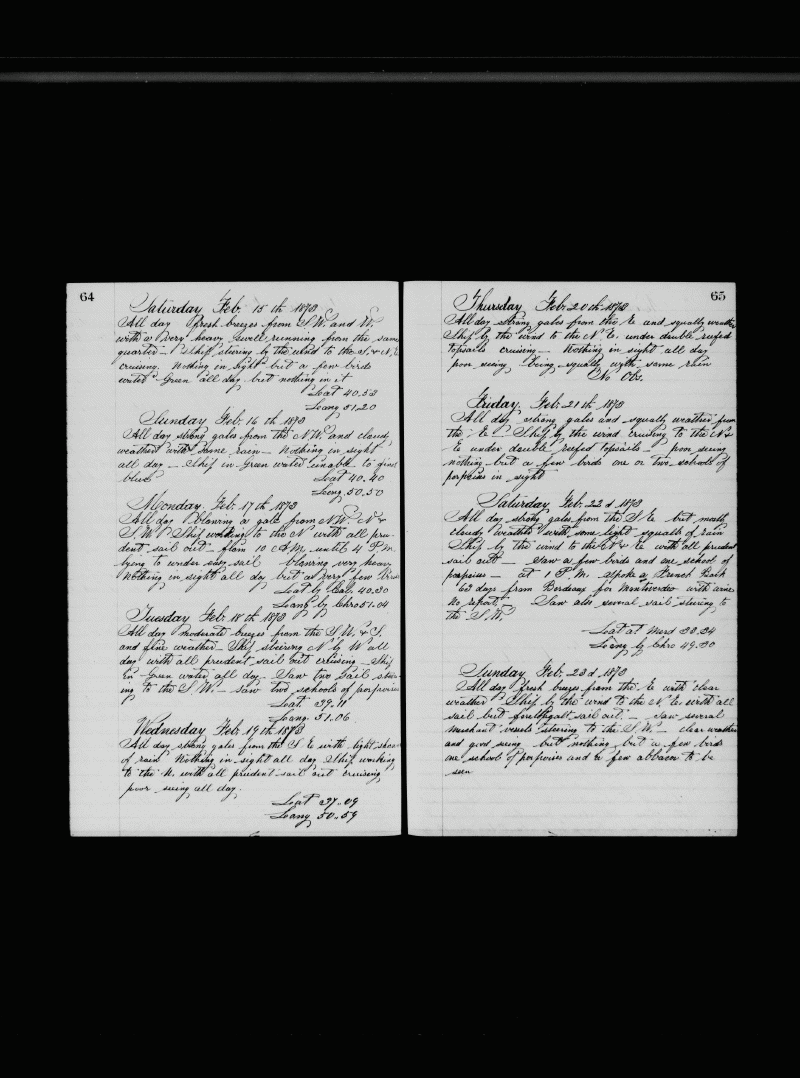 64
Saturday Feb. 15 th 1873
All day fresh breezes from S.W. and W.
with a very heavy swell running from the same
quarter — Ship steering by the wind to the S. & N.E
cruising. Nothing in sight but a few birds
water Green all day but nothing in it
Latt 40.53
Long 51.20
Sunday Feb. 16 th 1873
All day strong gales from the N.W. and cloudy
weather with some rain — Nothing in sight
all day — Ship in Green water unable to find
blue
Latt 40.40
Long 50.50
Monday Feb. 17 th 1873
All day blowing a gale from N.W. N &
S.W. Ship working to the N with all pru-
dent sail out — from 10 A.M. until 4 P.M.
lying to under easy sail blowing very heavy
Nothing in sight all day but a very few Birds
Latt by 40.30
Long by Chro 51.04
Tuesday Feb. 18 th 1873
All day moderate breezes from the S.W. & S.
and fine weather — Ship steering N by W all
day with all prudent sail out cruising — Ship
in Green water all day. Saw two sail steer-
ing to the S.W. — Saw two schools of porpoises
Latt. 39.11
Long. 51.06
Wednesday Feb. 19 th 1873
All day strong gales from the S.E. with light showers
of rain Nothing in sight all day Ship working
to the N. with all prudent sail out cruising
poor seeing all day.
Latt 37.09
Long 50.59
65
Thursday Feb. 20 th 1873
All day strong gales from the E and squally weather
Ship by the wind to the N.E. under double reefed
topsails cruising — Nothing in sight all day
poor seeing being squally with some rain
No Obs.
Friday. Feb. 21 th 1873
All day strong gales and squally weather from
the E — Ship by the wind cruising to the N &
E under double reefed topsails — poor seeing
nothing but a few birds one or two schools of
porpoises in sight
Saturday Feb. 22 d 1873
All day strong gales from the S.E. but mostly
cloudy weather with some light squalls of rain
Ship by the wind to the N & E with all prudent
sail out — Saw a few birds and one school of
porpoises — at 1 P.M. spoke a French Bark
63 days from Bordeaux for Montevideo with wine
No report. Saw also several sail steering to
the S.W.
Latt at Merd 38.34
Long by Chro 49.30
Sunday Feb. 23 d 1873
All day fresh breezes from the E with clear
weather Ship by the wind to the N.E. with all
sail but foretopgallt sail out. — Saw several
merchant vessels steering to the S.W. — clear weather
and good seeing but nothing but a few birds
one school of porpoises and a few to be
seen